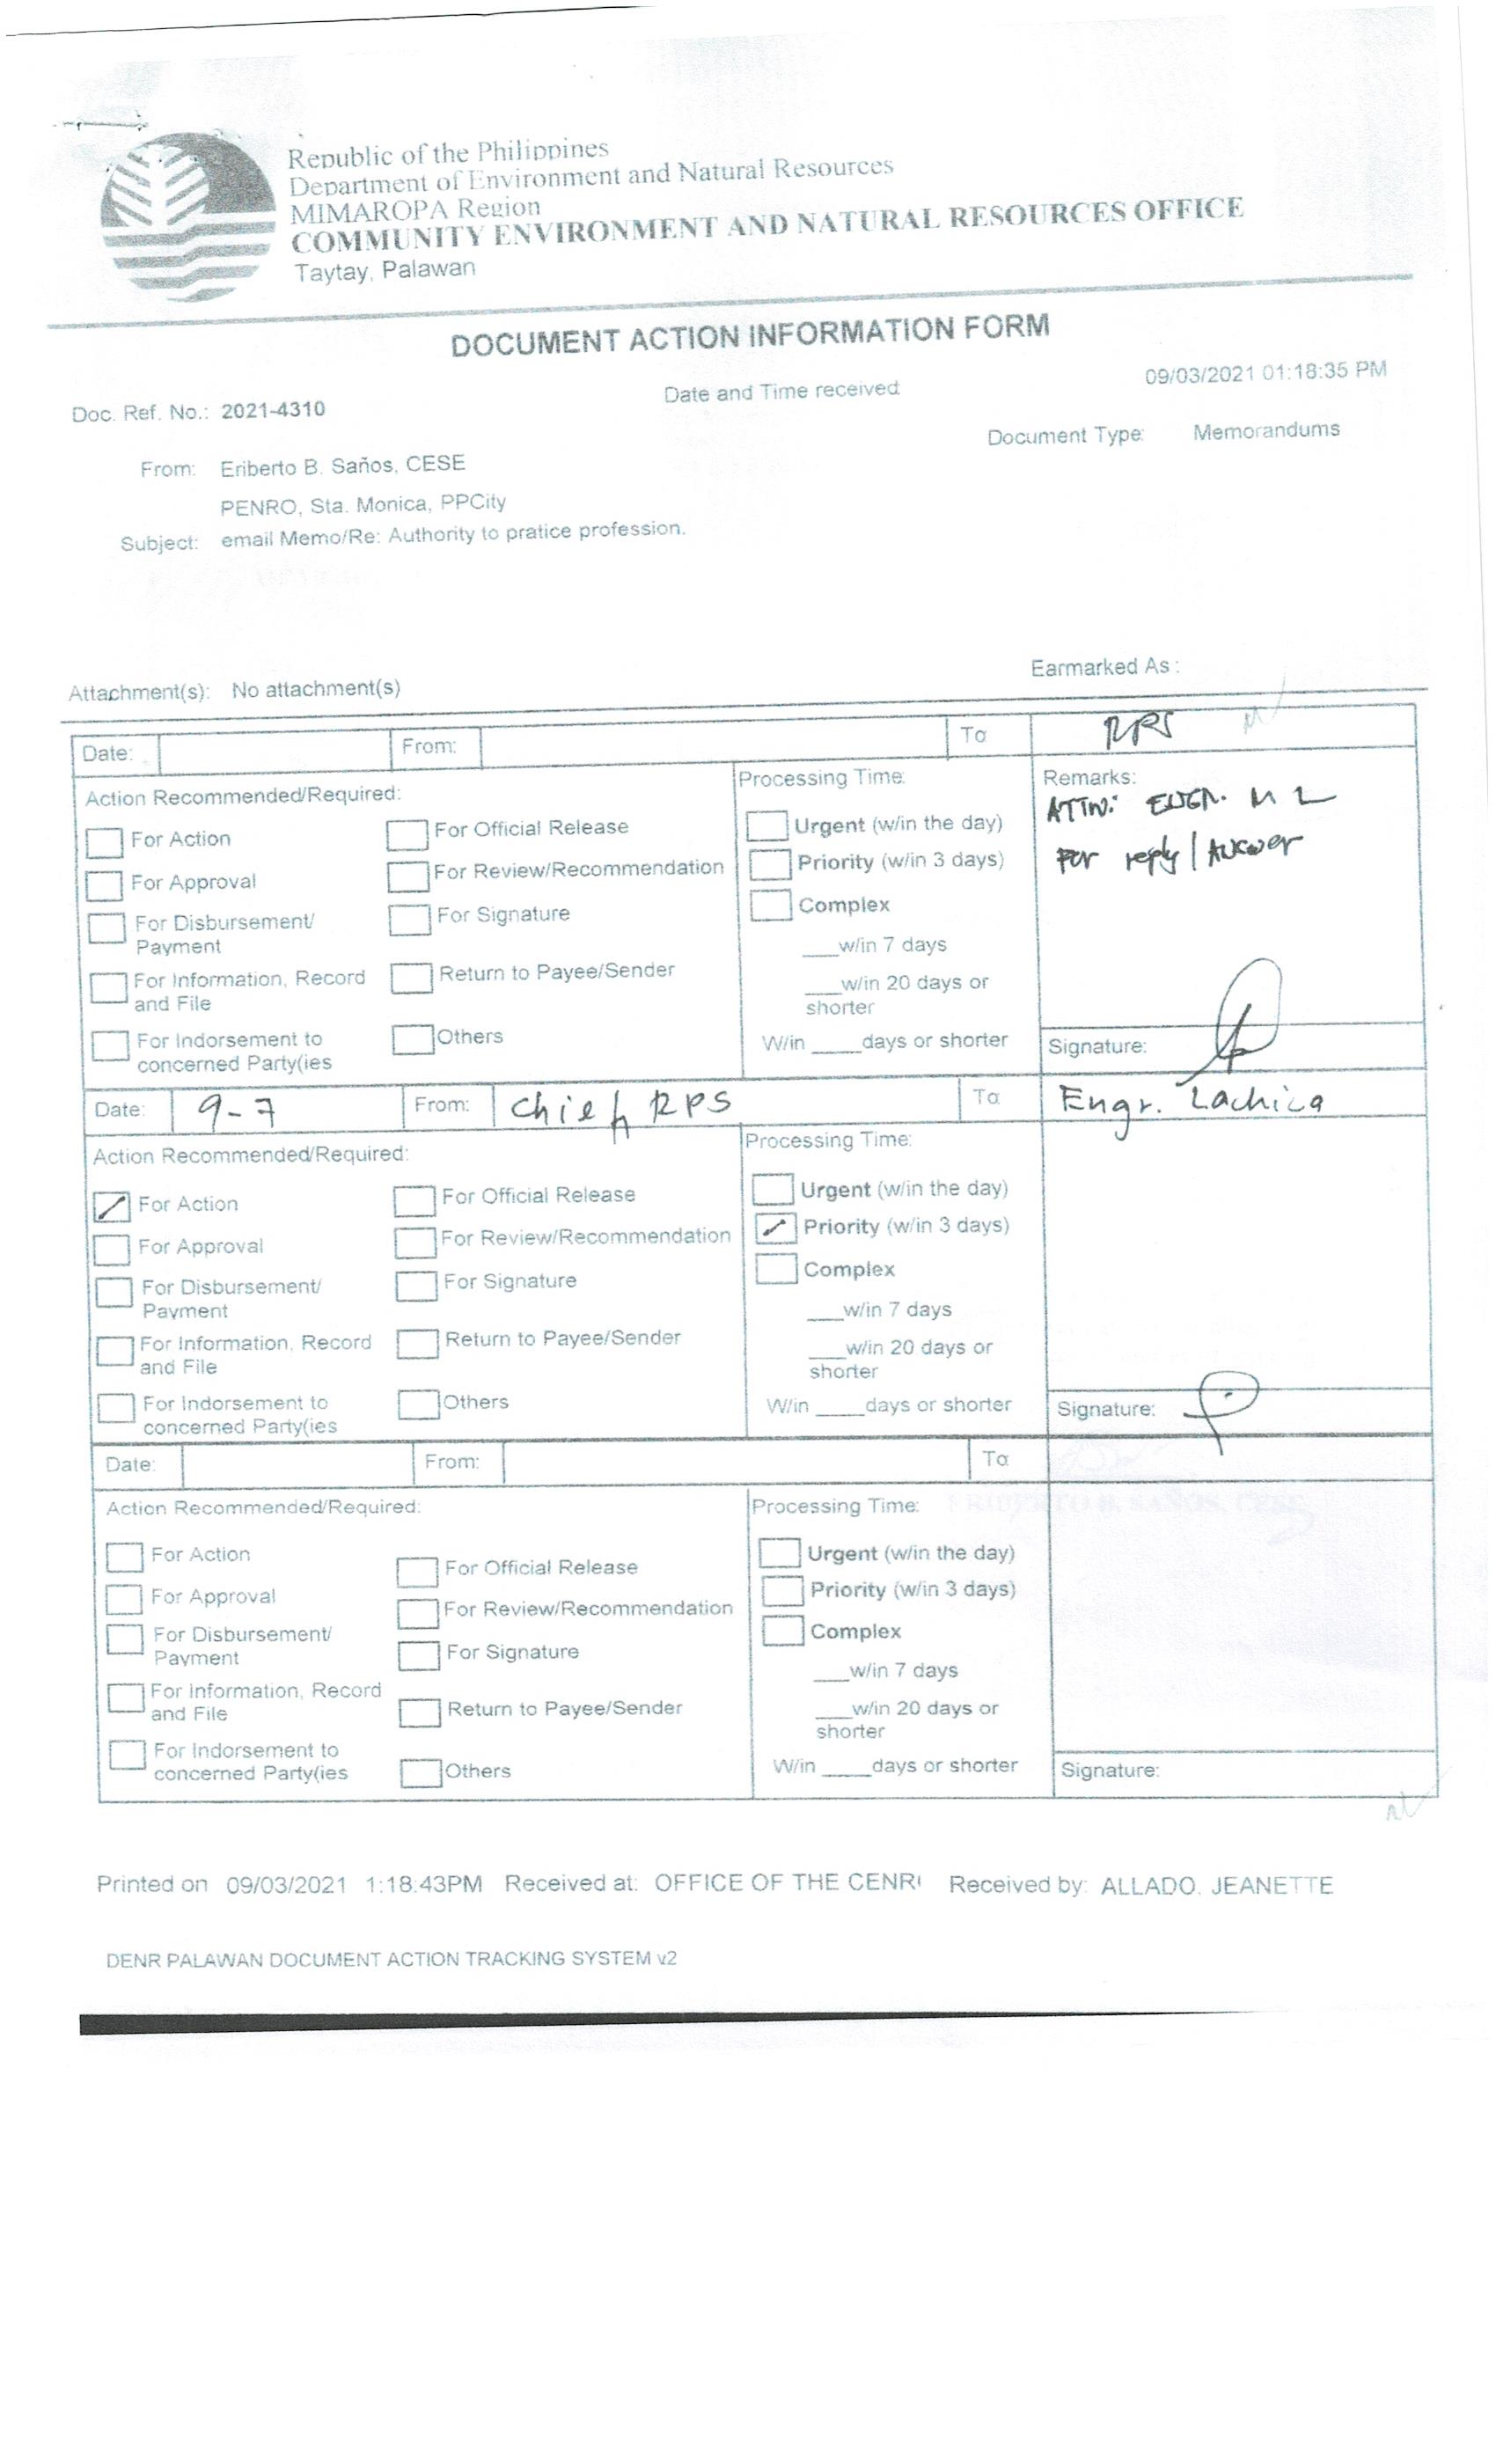 Republic of the Philippines
Department of Environment and Natural Resources
MIMAROPA Region
COMMUNITY ENVIRONMENT AND NATURAL RESOURCES OFFICE
Taytay, Palawan
DOCUMENT ACTION INFORMATION FORM
Doc. Ref. No.: 2021-4310 Date and Time received 09/03/2021 01:18:35 PM
Document Type: Memorandums
From: Eriberto B. Saños, CESE
PENRO, Sta. Monica, PPCity
Subject: email Memo/Re: Authority to pratice profession.
Earmarked As :
Attachment(s): No attachment(s)
Date: From: To RPS
Action Recommended/Required: Processing Time: Remarks:
ATTN: ENGR. M L
For reply / Answer
For Action For Official Release Urgent (w/in the day)
For Approval For Review/Recommendation Priority (w/in 3 days)
For Disbursement/ For Signature Complex
Payment ___w/in 7 days
For Information, Record Return to Payee/Sender ___w/in 20 days or
and File shorter
For Indorsement to Others W/in ____days or shorter Signature:
concerned Party(ies
Date: 9-7 From: Chief RPS To Engr. Lachica
Action Recommended/Required: Processing Time:
For Action For Official Release Urgent (w/in the day)
For Approval For Review/Recommendation Priority (w/in 3 days)
For Disbursement/ For Signature Complex
Payment ___w/in 7 days
For Information, Record Return to Payee/Sender ___w/in 20 days or
and File shorter
For Indorsement to Others W/in ____days or shorter Signature:
concerned Party(ies
Date: From: To
Action Recommended/Required: Processing Time:
For Action For Official Release Urgent (w/in the day)
For Approval For Review/Recommendation Priority (w/in 3 days)
For Disbursement/ For Signature Complex
Payment ___w/in 7 days
For Information, Record Return to Payee/Sender ___w/in 20 days or
and File shorter
For Indorsement to Others W/in ____days or shorter Signature:
concerned Party(ies
Printed on 09/03/2021 1:18:43PM Received at: OFFICE OF THE CENR Received by: ALLADO, JEANETTE
DENR PALAWAN DOCUMENT ACTION TRACKING SYSTEM v2